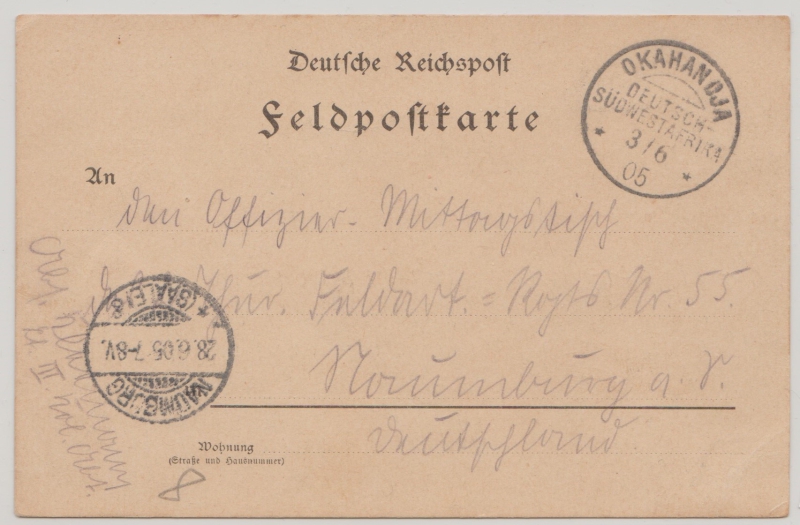 Deutsche Reichspost
Feldpostkarte
OKAHANDJA
DEUTSCH-
SÜDWESTAFRIKA
* 3/6 *
05
An
den Offizier-Mittagstisch
Thür. Feldart.=Rgts Nr. 55.
Naumburg a. S.
Deutschland
NAUMBURG
(SAALE) *
28.6.05.7-8V.
Wohnung
(Straße und Hausnummer)
8